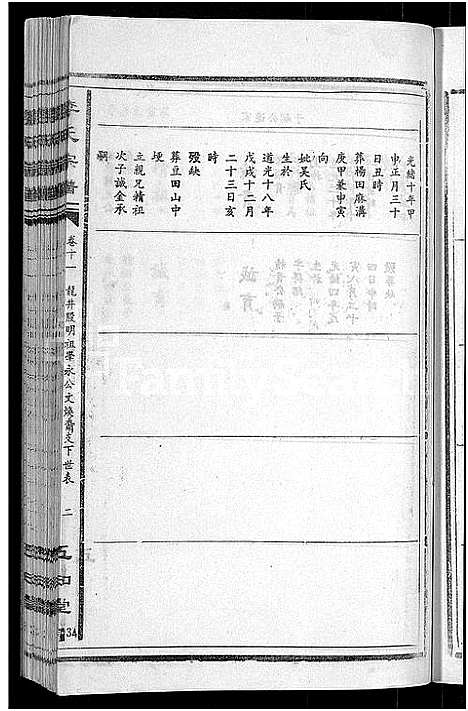 光緒十年甲
申正月三十
日丑時
葬楊田麻溝
庚甲兼申寅
向
妣吴氏
生於
道光十八年
戊戌十二月
二十三日亥
時
殁缺
葬豆田山中
埂
立親兄精祖
次子誠金承
嗣
李氏宗譜
卷十一
龍井殷明祖
永公文煥
支下世表
二
五知堂
34